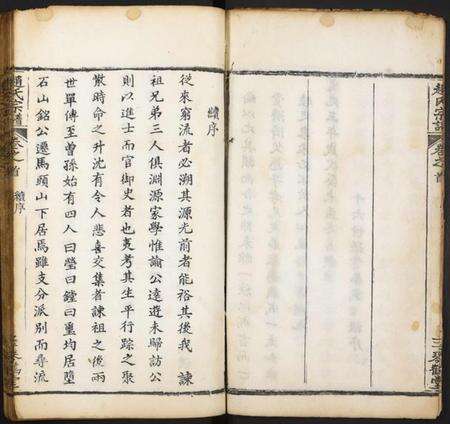 趙氏宗譜 卷之首 琴鶴堂
續序
從來窮流者必溯其源光前者能裕其後我 諫
祖兄弟三人俱淵源家學惟諭公遠遊未歸訪公
則以進士而官御史者也夷考其生平行踪之聚
散時命之升沈有令人悲喜交集者諫祖之後兩
世單傳至曾孫始有四人曰瑩曰鏜曰熏均居墮
石山銘公遷馬頭山下居焉雖支分派別而尋流
趙氏宗譜 卷之首 續序